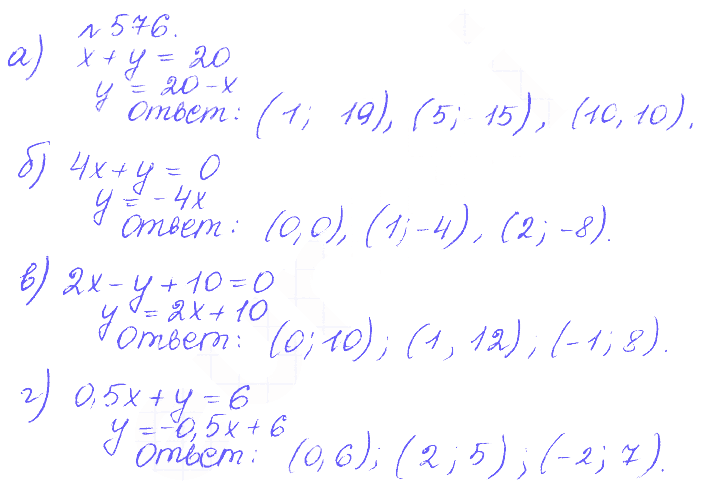 №576.
а) x + y = 20
y = 20 - x
Ответ: (1; 19), (5; 15), (10, 10).
б) 4x + y = 0
y = -4x
Ответ: (0,0), (1; -4), (2; -8).
в) 2x - y + 10 = 0
y = 2x + 10
Ответ: (0; 10); (1, 12); (-1; 8).
г) 0,5x + y = 6
y = -0,5x + 6
Ответ: (0, 6); (2; 5); (-2; 7).